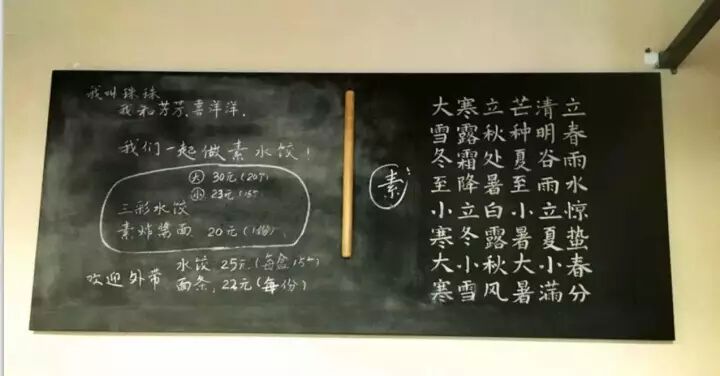 我叫珠珠
我和芳芳、喜洋洋,
我们一起做素水饺!
大 30元(20个)
小 23元(15个)
三彩水饺
素炸酱面 20元(1份)
水饺 25元(每盒15个)
欢迎外带 面条, 22元(每份)
素
立春雨水惊蛰春分
清明谷雨立夏小满
芒种夏至小暑大暑
立秋处暑白露秋风
寒露霜降立冬小雪
大雪冬至小寒大寒